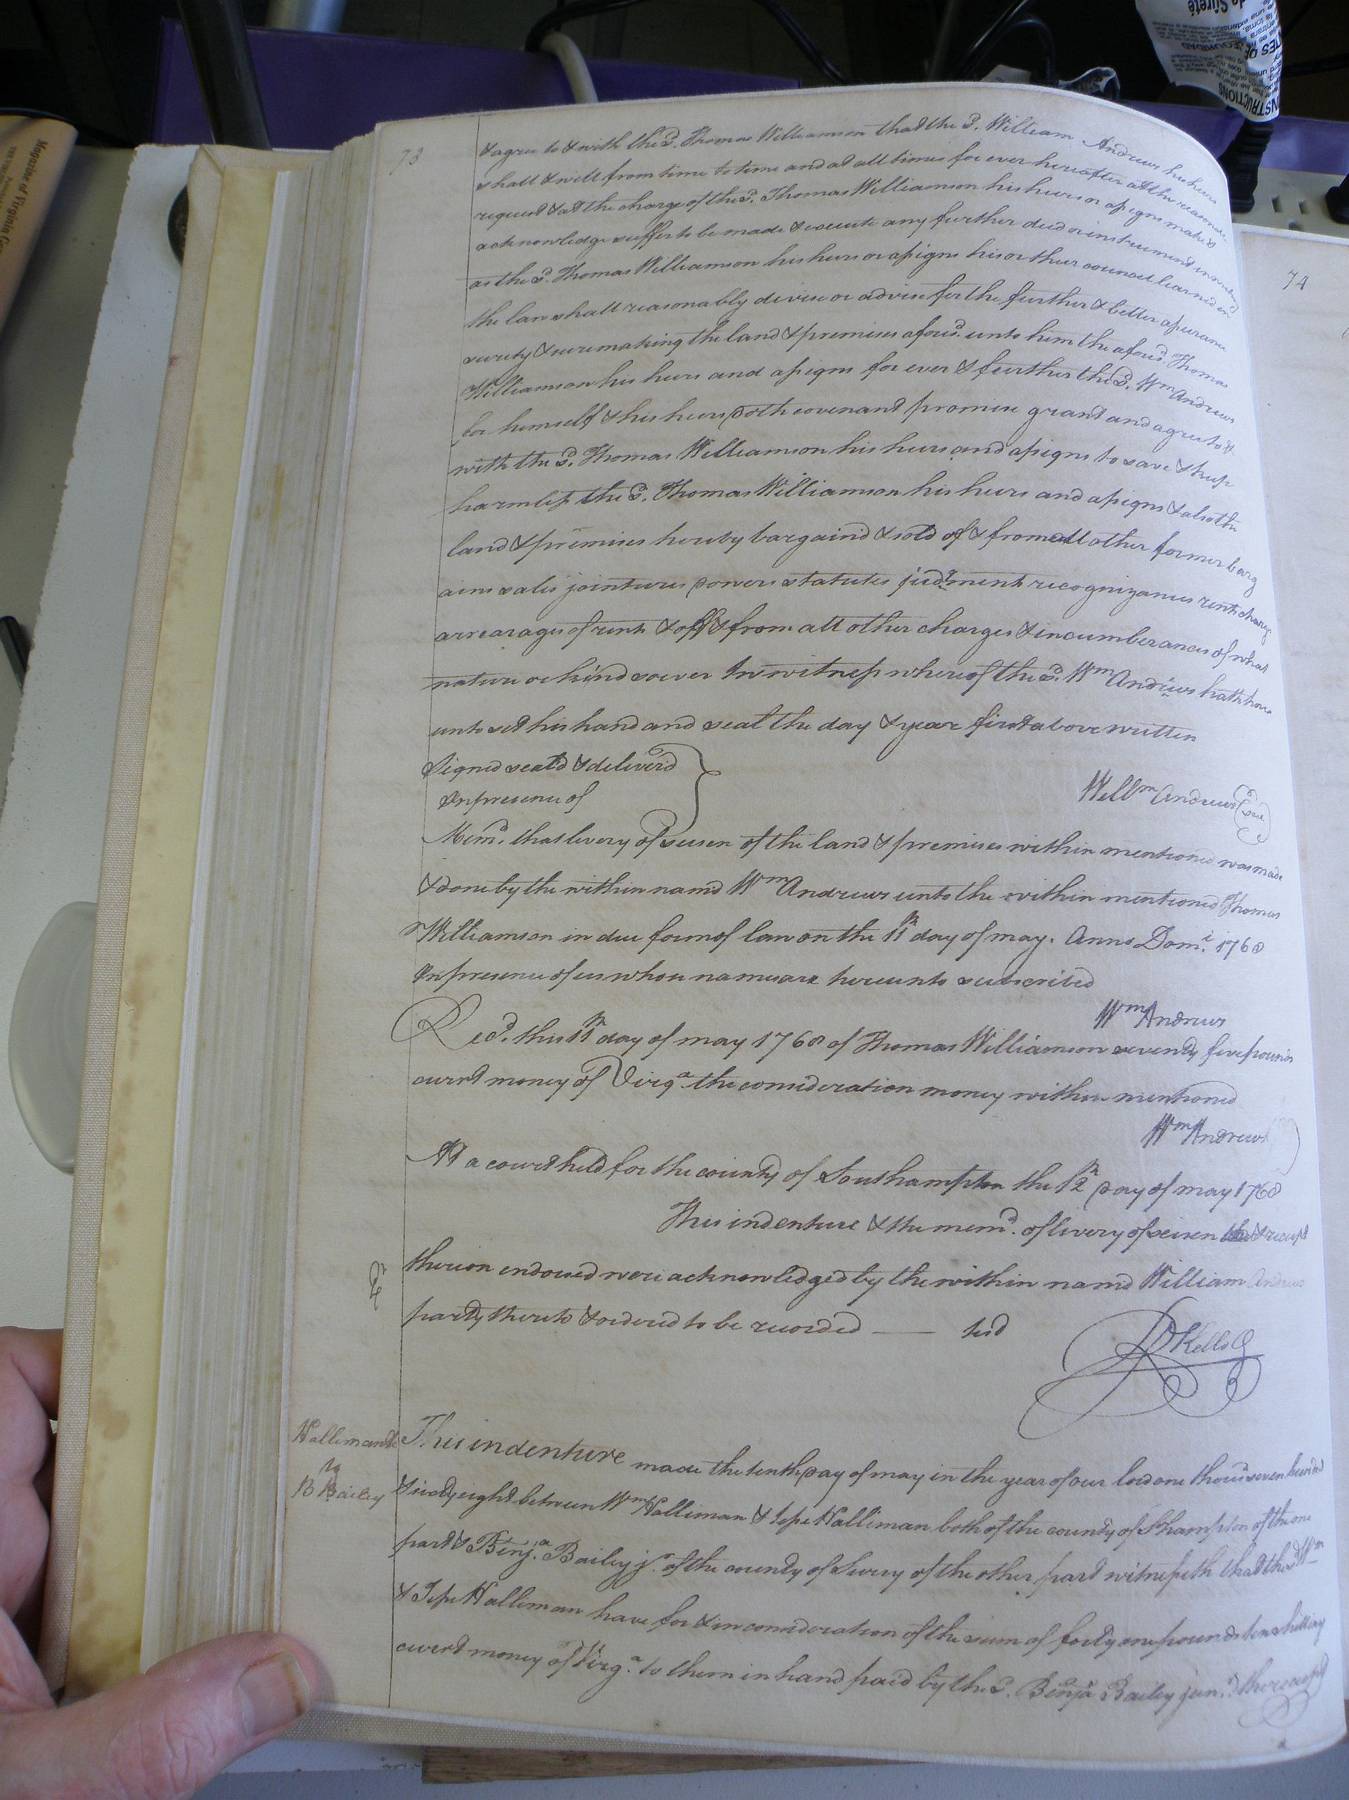 73
& agree to & with the sd. Thomas Williamson that the sd. William Andrews his heirs
shall & will from time to time and at all times for ever hereafter at the reasonable
request & at the charge of the sd. Thomas Williamson his heirs or assigns make
acknowledge suffer to be made & execute any further deed or instrument in writing
as the sd. Thomas Williamson his heirs or assigns his or their council learned in
the law shall reasonably devise or advise for the further & better assurance
surety & sure making the land & premises aforesd. unto him the aforesd. Thomas
Williamson his heirs and assigns for ever & further the sd. Wm Andrews
for himself & his heirs doth covenant promise grant and agree to &
with the sd. Thomas Williamson his heirs and assigns to save & keep
harmless the sd. Thomas Williamson his heirs and assigns & also the
land & premises hereby bargaind & sold of & from all other former barg
ains sales jointures dowers statutes judgment recognizances rents charge
arrearages of rents & off & from all other charges & incumberances of what
nature or kind soever In witness whereof the sd. Wm Andrews hath here
unto set his hand and seal the day & year first above written
Signed seald & deliverd
In presence of
Willm Andrews (Seal)
Memd. that livery of seisen of the land & premises within mentioned was made
& done by the within namd Wm Andrews unto the within mentioned Thomas
Williamson in due form of law on the 11th day of may. Anno Domi. 1768
In presence of us whose names are hereunto subscribed
Wm Andrews
Recd. this 11th day of may 1768 of Thomas Williamson seventy five pounds
curnt money of Virga. the consideration money within mentioned
Wm Andrews
At a court held for the county of Southampton the 12th day of may 1768
This indenture & the memd. of livery of seisen & receipt
thereon endorsed were acknowledged by the within namd William Andrews
party thereto & ordered to be recorded —— test
Ex
R Kello C
Halliman &c
to
B Bailey
This indenture made the tenth day of may in the year of our lord one thousd seven hundred
& sixty eight between Wm Halliman & Jesse Halliman both of the county of Shampton of the one
part & Benja. Bailey jr. of the county of Surry of the other part witnesseth that the sd Wm
& Jesse Halliman have for & in consideration of the sum of forty one pounds ten shilling
curnt money of Virga. to them in hand paid by the sd. Benja Bailey junr. thereof
74
Magazine of Virginia Ge